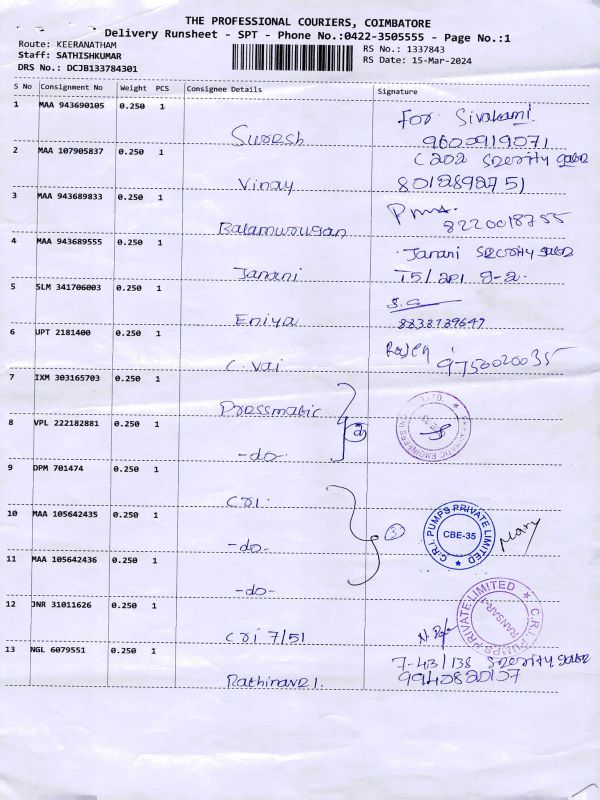 THE PROFESSIONAL COURIERS, COIMBATORE
Delivery Runsheet - SPT - Phone No.:0422-3505555 - Page No.:1
Route: KEERANATHAM
Staff: SATHISHKUMAR
DRS No.: DCJB133784301
RS No.: 1337843
RS Date: 15-Mar-2024
S No Consignment No Weight PCS Consignee Details Signature
1 MAA 943690105 0.250 1
Suresh
For Sivakami
9600919071
2 MAA 107905837 0.250 1
Vinay
C 202
8012892751
3 MAA 943689833 0.250 1
Balamurugan
8220018755
4 MAA 943689555 0.250 1
Janani
Janani
5 SLM 341706003 0.250 1
Eniya
6 UPT 2181400 0.250 1
C. Vai
9750020035
7 IXM 303165703 0.250 1
Pressmatic
8 VPL 222182881 0.250 1
-do-
2
9 DPM 701474 0.250 1
CRI.
10 MAA 105642435 0.250 1
-do-
3
C.R.I. PUMPS PRIVATE LIMITED
CBE-35
Mary
11 MAA 105642436 0.250 1
-do-
12 JNR 31011626 0.250 1
CRI 7/51
C.R.I. PUMPS PRIVATE LIMITED
13 NGL 6079551 0.250 1
Rathinavel.
7-43/138